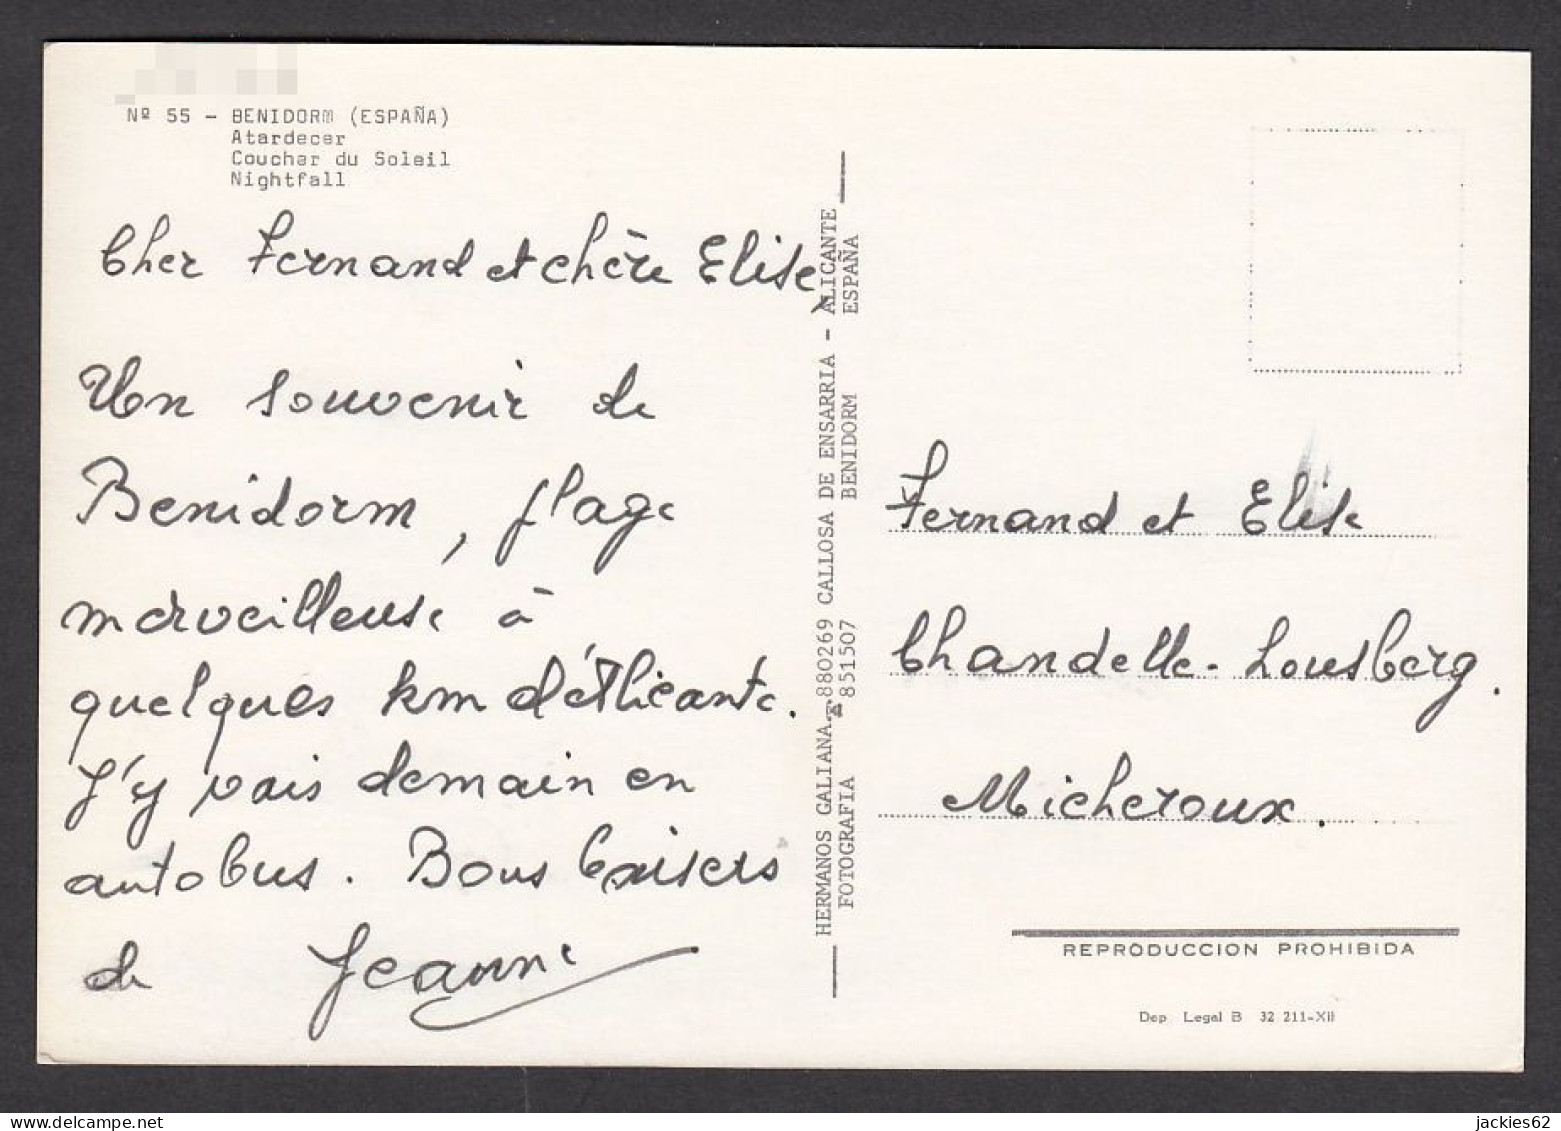 Nº 55 - BENIDORM (ESPAÑA)
Atardecer
Coucher du Soleil
Nightfall
Cher Fernand et chère Elise,
Un souvenir de
Benidorm, plage
merveilleuse à
quelques km d'Alicante.
J'y vais demain en
autobus. Bons baisers
de Jeanne
HERMANOS GALIANA. ☎ 880269 CALLOSA DE ENSARRIA - ALICANTE
FOTOGRAFIA ☎ 851507 BENIDORM ESPAÑA
Fernand et Elise
Chandelle-Lousberg.
Micheroux.
REPRODUCCION PROHIBIDA
Dep. Legal B 32 211-XII
jackies62